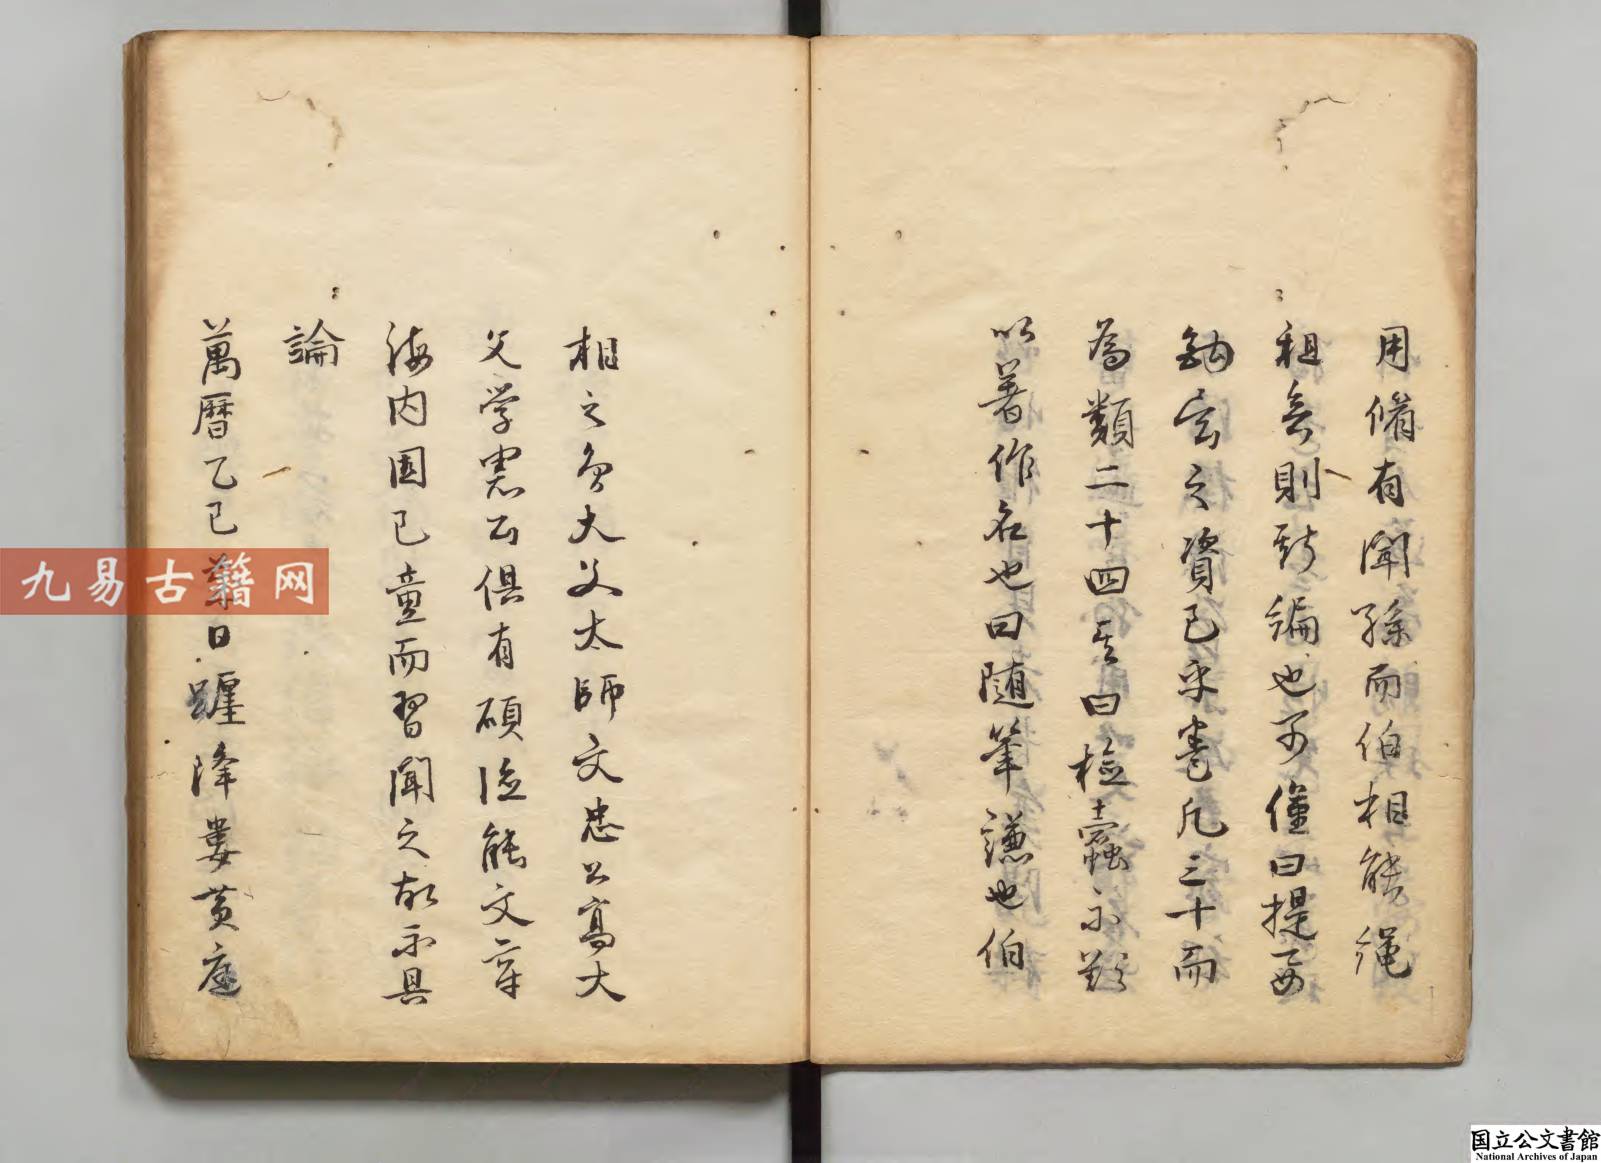 用脩有聞孫而伯相能繩
祖矣則新編也可僅曰提要
鉤玄之資已乎書凡三十而
為類二十四其曰檢蠹示難
以著作名也曰隨筆謙也伯
相之曾大父太師文忠公高大
父学憲公俱有碩德能文章
海内固已童而習聞之故不具
論
萬曆乙巳日躔降婁黃庭
九易古籍网
国立公文書館
National Archives of Japan